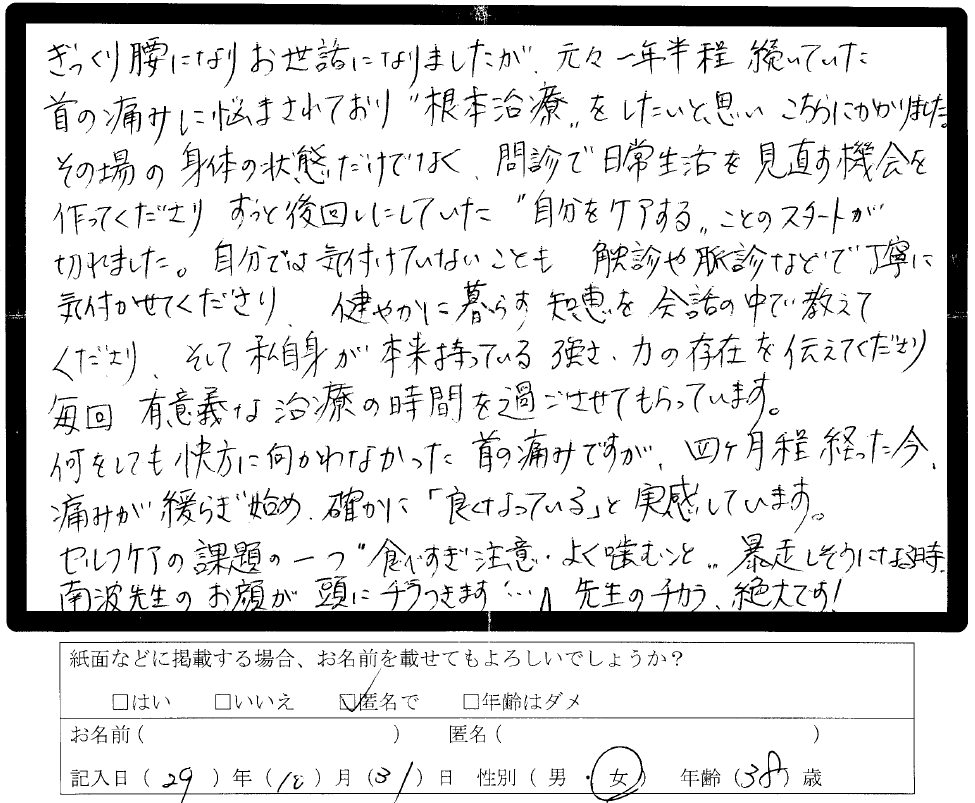 ぎっくり腰になりお世話になりましたが、元々一年半程続いていた
首の痛みに悩まされており〝根本治療〟をしたいと思いこちらにかかりました。
その場の身体の状態だけでなく、問診で日常生活を見直す機会を
作ってくださり ずっと後回しにしていた〝自分をケアする〟ことのスタートが
切れました。自分では気付けていないことも 触診や脈診などで丁寧に
気付かせてくださり、健やかに暮らす知恵を会話の中で教えて
くださり、そして私自身が本来持っている強さ・力の存在を伝えてくださり
毎回 有意義な治療の時間を過ごさせてもらっています。
何をしても快方に向かわなかった首の痛みですが、四ヶ月程経った今、
痛みが緩らぎ始め、確かに「良くなっている」と実感しています。
セルフケアの課題の一つ〝食べすぎ注意・よく噛むこと〟暴走しそうになる時、
南波先生のお顔が頭にチラつきます… 先生のチカラ、絶大です!
紙面などに掲載する場合、お名前を載せてもよろしいでしょうか?
□はい □いいえ ☑匿名で □年齢はダメ
お名前( ) 匿名( )
記入日(29)年(10)月(31)日 性別(男・女) 年齢(38)歳